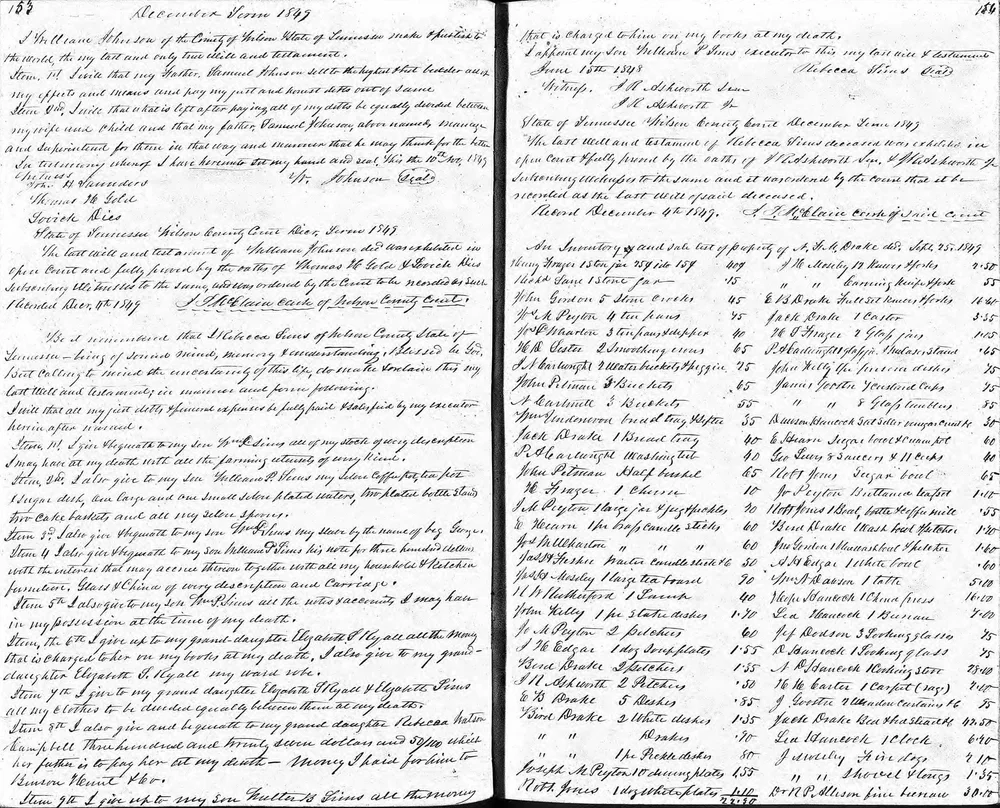 153
December Term 1849
I William Johnson of the County of Wilson State of Tennessee make & publish to
the world, this my last and only true will and testament.
Item, 1st I will that my Father, Samuel Johnson sell to the highest & best bidder all of
my effects and means and pay my just and honest debts out of same
Item 2nd, I will that what is left after paying all of my debts be equally divided between
my wife and child and that my father, Samuel Johnson, above named, manage
and superintend for them in that way and manner that he may think for the better
In testimony whereof I have hereunto set my hand and seal, This the 10th Nov, 1849
Witness
Wm Johnson (Seal)
John H Saunders
Thomas H Gold
Lovick Dies
State of Tennessee Wilson County Court Decr, Term 1849
The last will and testament of William Johnson decd was exhibited in
open Court and fully proved by the oaths of Thomas H Gold & Lovick Dies
Subscribing Witnesses to the same, and was ordered by the Court to be recorded as such
Recorded Decr, 4th 1849 J. S. McClain Clerk of Wilson County Court.
Be it remembered that I Rebecca Sims of Wilson County State of
Tennessee being of sound mind, memory & understanding, Blessed be God,
But calling to mind the uncertainty of this life, do make & declare this my
last Will and testament, in manner and form following.
I will that all my just debts & funeral expenses be fully paid & satisfied by my executor
herein after named.
Item, 1st, I give & bequath to my son Wm P. Sims all of my stock of every description
I may have at my death with all the farming utensils of every kind.
Item, 2nd, I also give to my son William P. Sims my silver Coffee pot, tea pot
& sugar dish, one large and one small silver plated waters, two plated bottle stand
two Cake baskets and all my silver spoons.
Item 3rd I also give & bequath to my son Wm P. Sims my slave by the name of big George.
Item 4 I also give & bequath to my son William P Sims his note for three hundred dollars
with the interest that may accrue thereon together with all my household & kitchen
furniture. Glass & China of every description and Carriage.
Item 5th I also give to my son Wm P. Sims all the notes & accounts I may have
in my possession at the time of my death.
Item, the 6th I give up to my grand-daughter Elizabeth S Ryall all the money
that is charged to her on my books at my death. I also give to my grand-
daughter Elizabeth S. Ryall my ward robe.
Item 7th I give to my grand daughter Elizabeth S Ryall & Elizabeth Sims
all my clothes to be devided equally between them at my death.
Item 8th I also give and bequath to my grand daughter Rebecca Watson
Campbell three hundred and twenty seven dollars and 50/100 which
her father is to pay her at my death — money I paid for him to
Benson Hunt & Co.
Item 9th I give up to my son Walter B Sims all the money
154
that is charged to him on my books at my death.
I appoint my Son William P Sims executor to this my last will & testament
June 13th 1848 Rebecca Sims (Seal)
Witness, J R Ashworth Senr
J R Ashworth Jr
State of Tennessee Wilson County Court December Term 1849
The last Will and testament of Rebecca Sims deceased was exhibited in
open Court & fully proved by the oaths of J R Ashworth Sen. & J R Ashworth Jr
Subscribing Witnesses to the same and it was ordered by the Court that it be
recorded as the last Will of said deceased.
Record December 4th 1849. J. S. McClain Clerk of said Court
An Inventory and sale list of property of decd, Sept. 25, 1849
Henry Frazer 1 Stone jar 25¢ 1 do 15¢ 40
Richd Lane 1 Stone jar 15
John Gordon 5 Stone crocks 45
Jos M Peyton 4 tin pans 75
Jos C Wharton 3 tin pans & dipper 40
H D Lester 2 Smoothing irons 65
J N Cartwright 2 Water buckets & piggin 75
John Pitman 3 Buckets 65
N Cartmell 3 Buckets 55
Wm Underwood bread tray & sifter 35
Jack Drake 1 Bread tray 40
P A Cartwright Washing tub 40
John Pitman Half bushel 65
H Frazer 1 Churn 10
J M Peyton 1 large jar & jug & pickles 70
E Hearn 1 pr brass candle sticks 60
Jos W Wharton " " " 60
Jas H Fisher Waiter candle stick &c 50
Jas H Mosley 1 large tea board 70
R W Rutherford 1 Lamp 40
John Kelly 1 pr Steake dishes 1.70
Jo M Peyton 2 Pitchers 60
J H Edgar 1 dog soup plates 1.55
Bird Drake 2 pitchers 1.35
J R Ashworth 2 Pitchers .50
E B Drake 5 Dishes .85
Bird Drake 2 White dishes 1.35
" " Drakes .70
" " 1 pr Pickle dishes 80
Joseph M Peyton 10 dining plates 1.55
Robt. Jones 1 dog White plates 1.10
22.30
J H Mosley 12 Knives & forks 2.50
" " Carving knife & fork 55
E B Drake Full set knives & forks
Jack Drake 1 Castor 3.35
H F Frazer 2 Glass jars 1.05
.65
John Kelly the preserve dishes 75
James Gooster 7 Custard Cups 75
" " 8 Glass tumblers .85
Dawson Hancock Salt Seller & sugar crust &c 30
E Hearn Sugar bowl & cream pot 60
Geo Sims 8 Saucers & 11 Cups 40
Robt Jones Sugar bowl 65
Jo Peyton Brittania teapot 1.50
Robt Jones Bowl, bottle & coffee mill .55
Bird Drake Wash bowl & pitcher 1.40
Jno Gordon 1 Wash bowl & pitcher 1.60
A H Edgar 1 White bowl .60
Wm N Dawson 1 table 5.00
Hope Hancock 1 China press 16.00
Lea Hancock 1 Bureau 7.00
Jef Dodson 3 Looking glasses 75
D Hancock 1 Looking glass 75
N D Hancock 1 Cooking stove 28.00
H H Carter 1 Carpet (rag) 2.10
J Gooster 2 Window Curtains &c 75
Jack Drake Bed & bed stead &c 42.50
Lea Hancock 1 Clock 6.90
J Mosley Fire dogs 2.10
" " Shovel & tongs 1.35
Dr N P Allison fine bureau 30.00